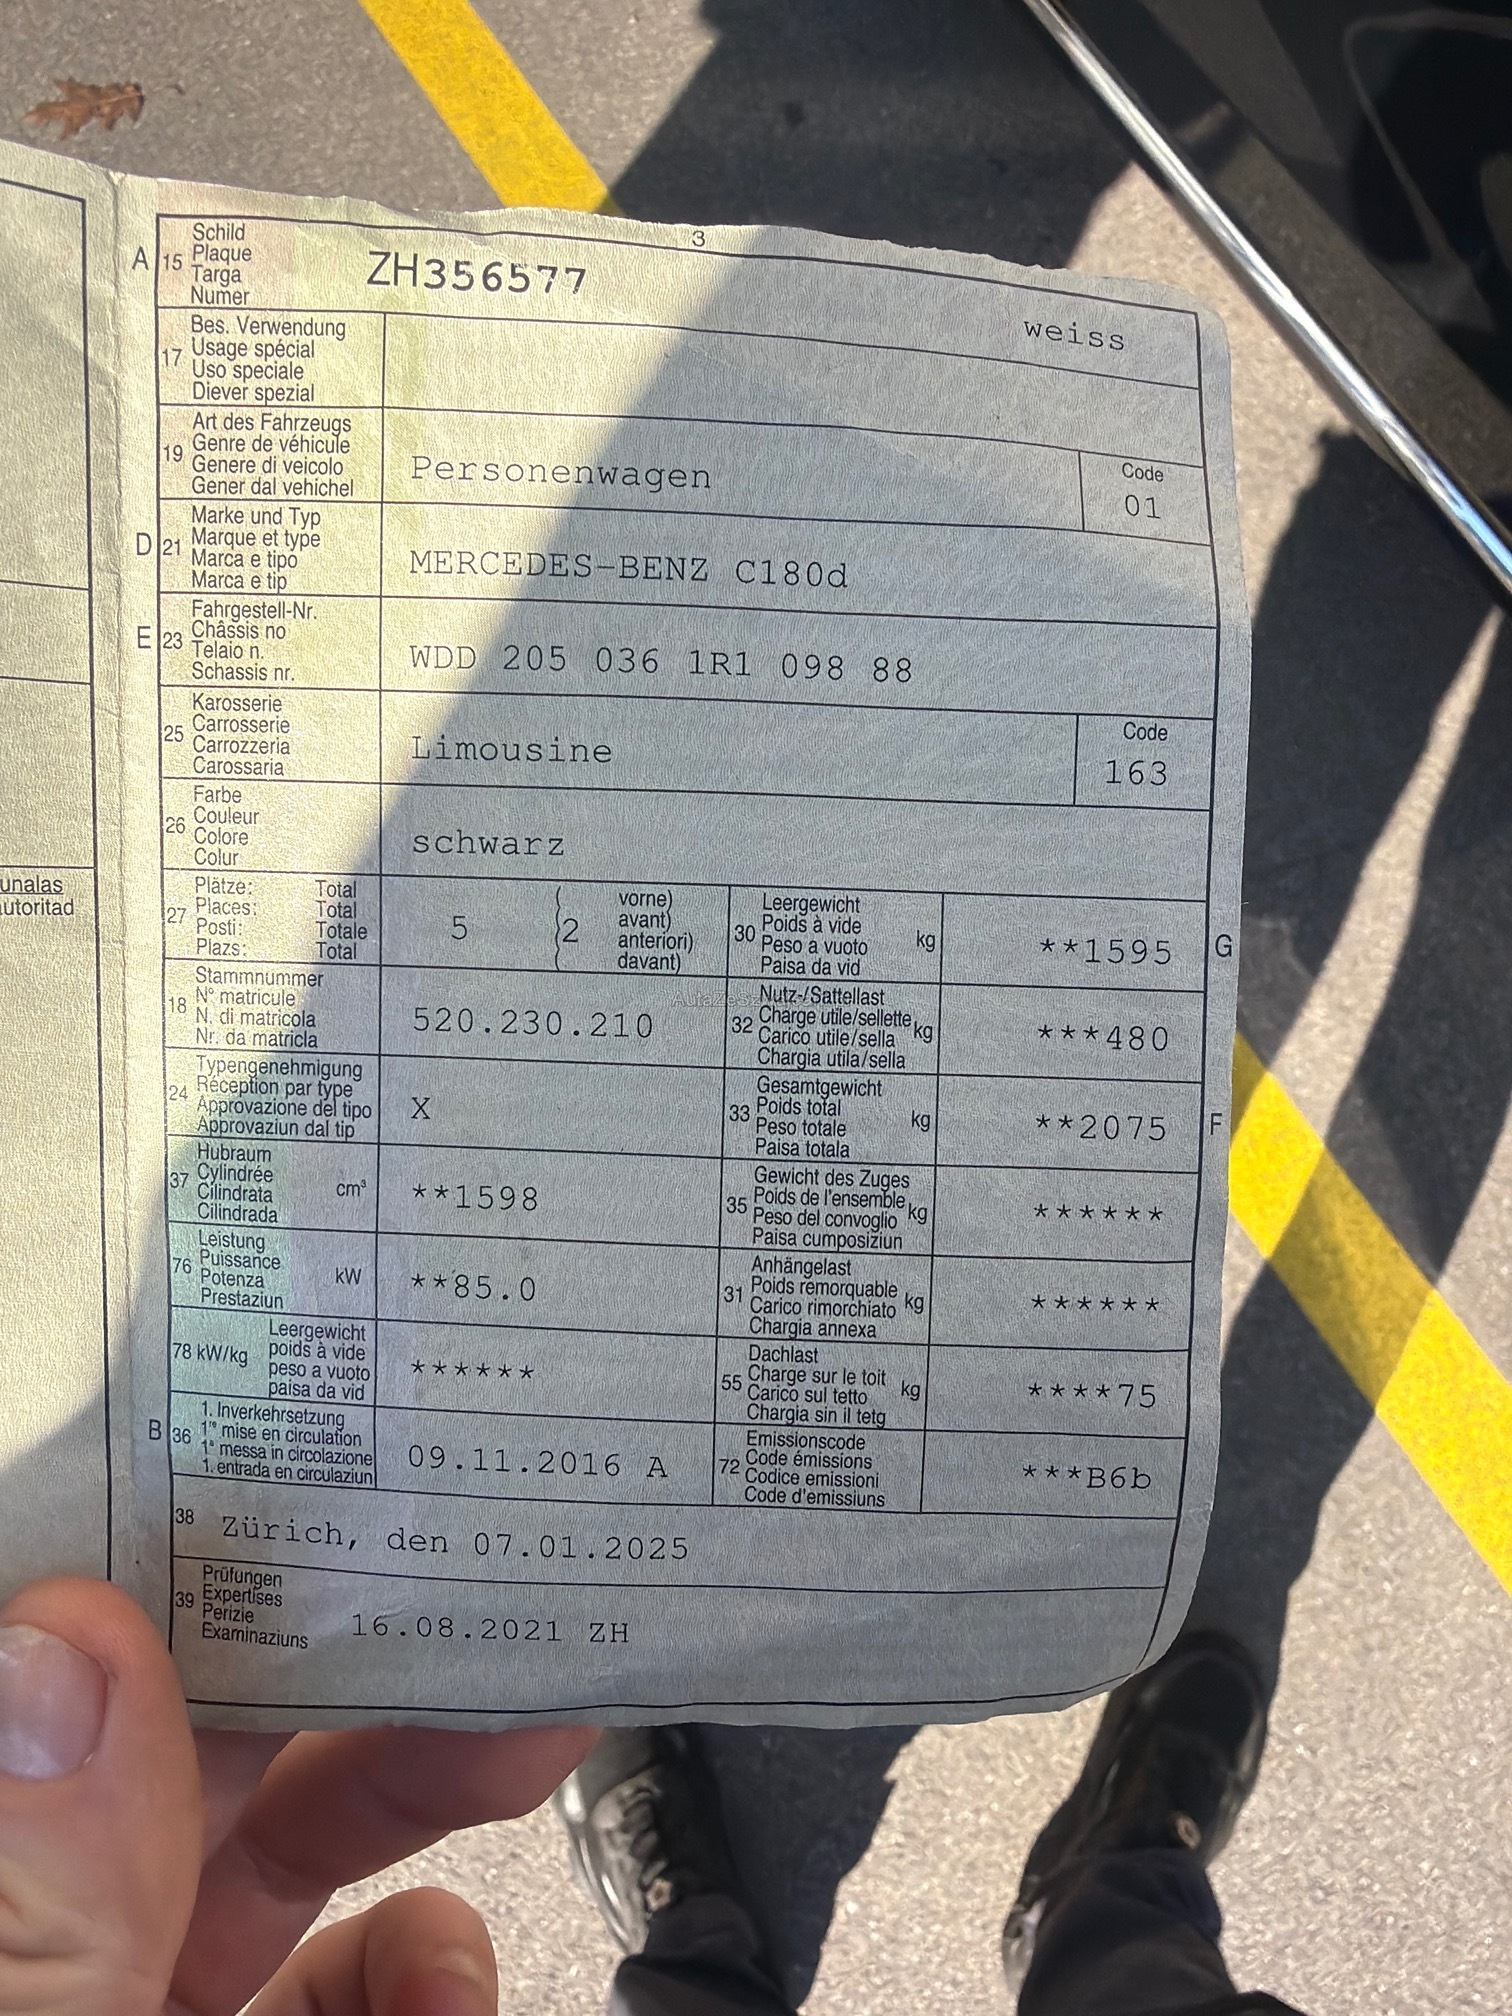 3
A 15 Schild
Plaque
Targa
Numer
ZH356577
weiss
17 Bes. Verwendung
Usage spécial
Uso speciale
Diever spezial
19 Art des Fahrzeugs
Genre de véhicule
Genere di veicolo
Gener dal vehichel
Personenwagen
Code
01
D 21 Marke und Typ
Marque et type
Marca e tipo
Marca e tip
MERCEDES-BENZ C180d
E 23 Fahrgestell-Nr.
Châssis no
Telaio n.
Schassis nr.
WDD 205 036 1R1 098 88
25 Karosserie
Carrosserie
Carrozzeria
Carossaria
Limousine
Code
163
26 Farbe
Couleur
Colore
Colur
schwarz
unalas
utoritad
27 Plätze: Total
Places: Total
Posti: Totale
Plazs: Total
5
(2 vorne)
avant)
anteriori)
davant)
30 Leergewicht
Poids à vide
Peso a vuoto
Paisa da vid
kg
**1595
G
18 Stammnummer
N° matricule
N. di matricola
Nr. da matricla
520.230.210
32 Nutz-/Sattellast
Charge utile/sellette
Carico utile/sella
Chargia utila/sella
kg
***480
24 Typengenehmigung
Réception par type
Approvazione del tipo
Approvaziun dal tip
X
33 Gesamtgewicht
Poids total
Peso totale
Paisa totala
kg
**2075
F
37 Hubraum
Cylindrée
Cilindrata
Cilindrada
cm³
**1598
35 Gewicht des Zuges
Poids de l'ensemble
Peso del convoglio
Paisa cumposiziun
kg
******
76 Leistung
Puissance
Potenza
Prestaziun
kW
**85.0
31 Anhängelast
Poids remorquable
Carico rimorchiato
Chargia annexa
kg
******
78 kW/kg Leergewicht
poids à vide
peso a vuoto
paisa da vid
******
55 Dachlast
Charge sur le toit
Carico sul tetto
Chargia sin il tetg
kg
****75
B 36 1. Inverkehrsetzung
1re mise en circulation
1a messa in circolazione
1. entrada en circulaziun
09.11.2016 A
72 Emissionscode
Code émissions
Codice emissioni
Code d'emissiuns
***B6b
38 Zürich, den 07.01.2025
39 Prüfungen
Expertises
Perizie
Examinaziuns
16.08.2021 ZH